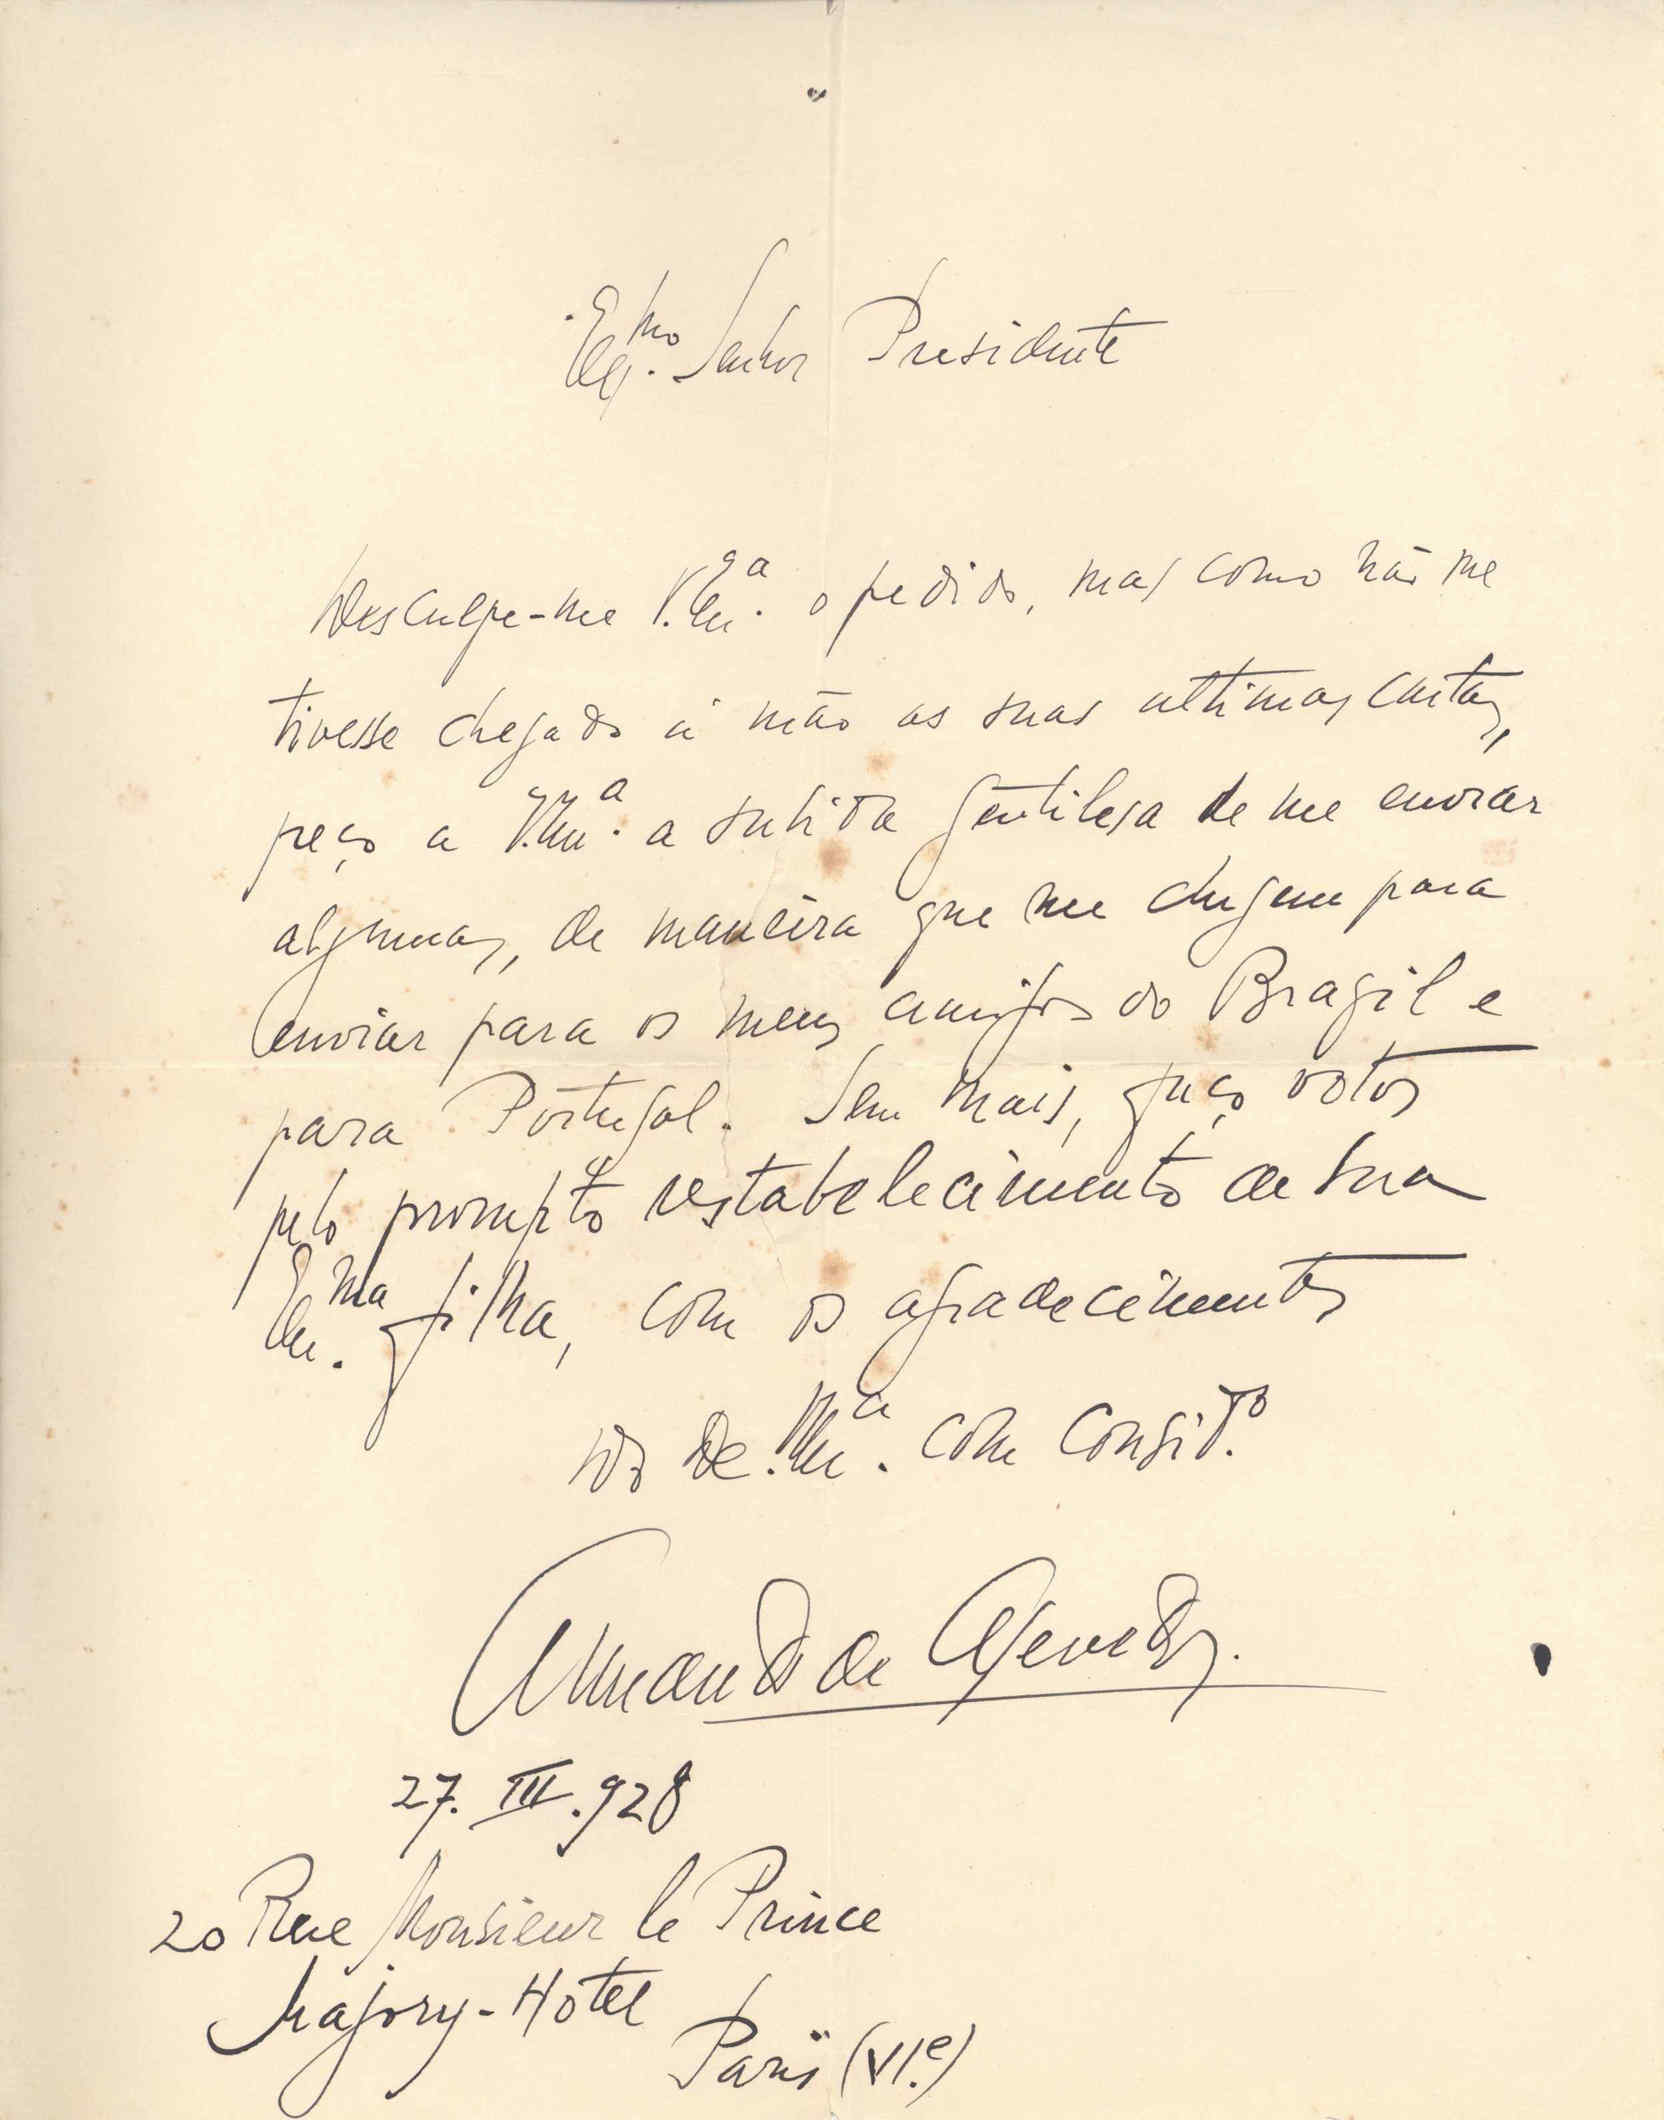 Exmo. Senhor Presidente
Desculpe-me V. Exa. o pedido, mas como não me
tivesse chegado á mão as suas ultimas cartas,
peço a V. Exa. a subida gentilesa de me enviar
algumas, de maneira que me chegem para
enviar para os meus amigos do Brazil e
para Portugal. Sem mais, faço votos
pelo prompto restabelecimento de sua
Exma. filha, com os agradecimentos
do de V. Exa. com
Armando de Azevedo.
27. III. 928
20 Rue Monsieur le Prince
Majory-Hotel
Paris (VI.e)